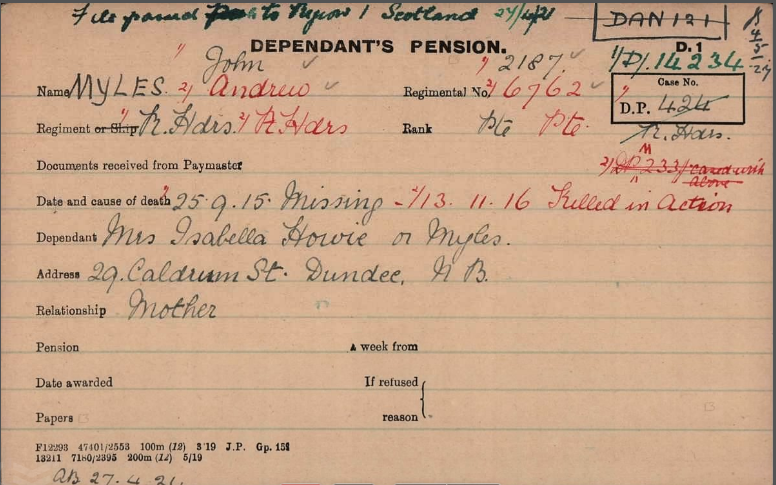 File passed to Region 1 Scotland 27/4/21
DAN 121
DEPENDANT'S PENSION.
D. 1
1/D/. 14234
Name MYLES. 1/ John 2/ Andrew
Regimental No. 1/ 2187 2/ 6762
Case No.
D.P. 424
R. Hdrs.
Regiment or Ship 1/ R. Hdrs. 2/ R. Hdrs
Rank Pte Pte.
Documents received from Paymaster
2/ DP M 233/ cased with above
Date and cause of death 1/ 25.9.15. Missing - 2/ 13.11.16 Killed in Action
Dependant Mrs Isabella Howie or Myles.
Address 29. Caldrum St. Dundee, N B.
Relationship Mother
Pension A week from
Date awarded If refused
Papers reason
F12293 47401/2553 100m (12) 3/19 J.P. Gp. 151
13211 7180/2395 200m (12) 5/19
AB 27.4.21.